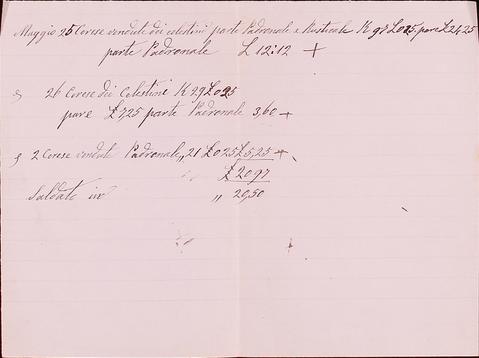 Maggio 25 Cerese vendute dei celestini parte Padronale e Rusticale K 97 L 0,25. pare £ 24,25
parte Padronale L 12:12 +
26 Cerese dei Celestini K 29 L 0,25
pare £ 7,25 parte Padronale 3,60 +
2 Cerese vendute Padronale „ 21 L 0,25 £ 5,25 +
£ 20,97
Saldato in „ 20,50